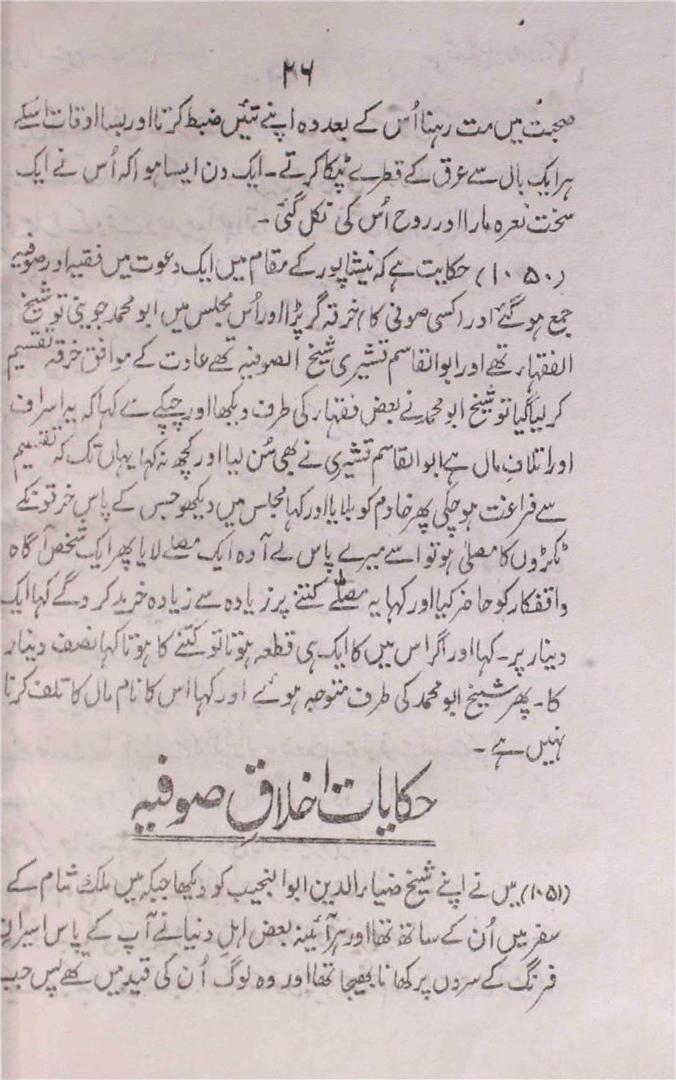 ۳۶
صحبت میں مت رہنا اُس کے بعد وہ اپنے تئیں ضبط کرتا اور بسا اوقات اسکے
ہر ایک بال سے عرق کے قطرے ٹپکا کرتے۔ ایک دن ایسا ہوا کہ اُس نے ایک
سخت نعرہ مارا اور روح اُس کی نکل گئی۔
(۱۰۵۰) حکایت ہے کہ نیشاپور کے مقام میں ایک دعوت میں فقیہ اور صوفیہ
جمع ہو گئے اور (کسی صوفی کا) خرقہ گر پڑا اور اُس مجلس میں ابو محمد جوینی تو شیخ
الفقہاء تھے اور ابوالقاسم قشیری شیخ الصوفیہ تھے عادت کے موافق خرقہ تقسیم
کر لیا گیا تو شیخ ابو محمد نے بعض فقہاء کی طرف دیکھا اور چپکے سے کہا کہ یہ اسراف
اور اتلافِ مال ہے ابوالقاسم قشیری نے بھی سُن لیا اور کچھ نہ کہا یہاں تک کہ تقسیم
سے فراغت ہو چکی پھر خادم کو بلایا اور کہا مجلس میں دیکھو جس کے پاس خرقونکے
ٹکڑوں کا مصلیٰ ہو تو اسے میرے پاس لے آ وہ ایک مصلے لایا پھر ایک شخص آگاہ
واقفکار کو حاضر کیا اور کہا یہ مصلّے کتنے پر زیادہ سے زیادہ خرید کرو گے کہا ایک
دینار پر۔ کہا اور اگر اس میں کا ایک ہی قطعہ ہوتا تو کتنے کا ہوتا کہا نصف دینار
کا۔ پھر شیخ ابو محمد کی طرف متوجہ ہوئے اور کہا اس کا نام مال کا تلف کرنا
نہیں ہے۔
حکایات اخلاقِ صوفیہ
(۱۰۵۱) میں نے اپنے شیخ ضیاء الدین ابو النجیب کو دیکھا جبکہ میں ملک شام کے
سفر میں اُن کے ساتھ تھا اور ہر آئینہ بعض اہلِ دنیا نے آپ کے پاس اسیرانِ
فرنگ کے سروں پر کھانا بھیجا تھا اور وہ لوگ اُن کی قید میں تھے پس جب